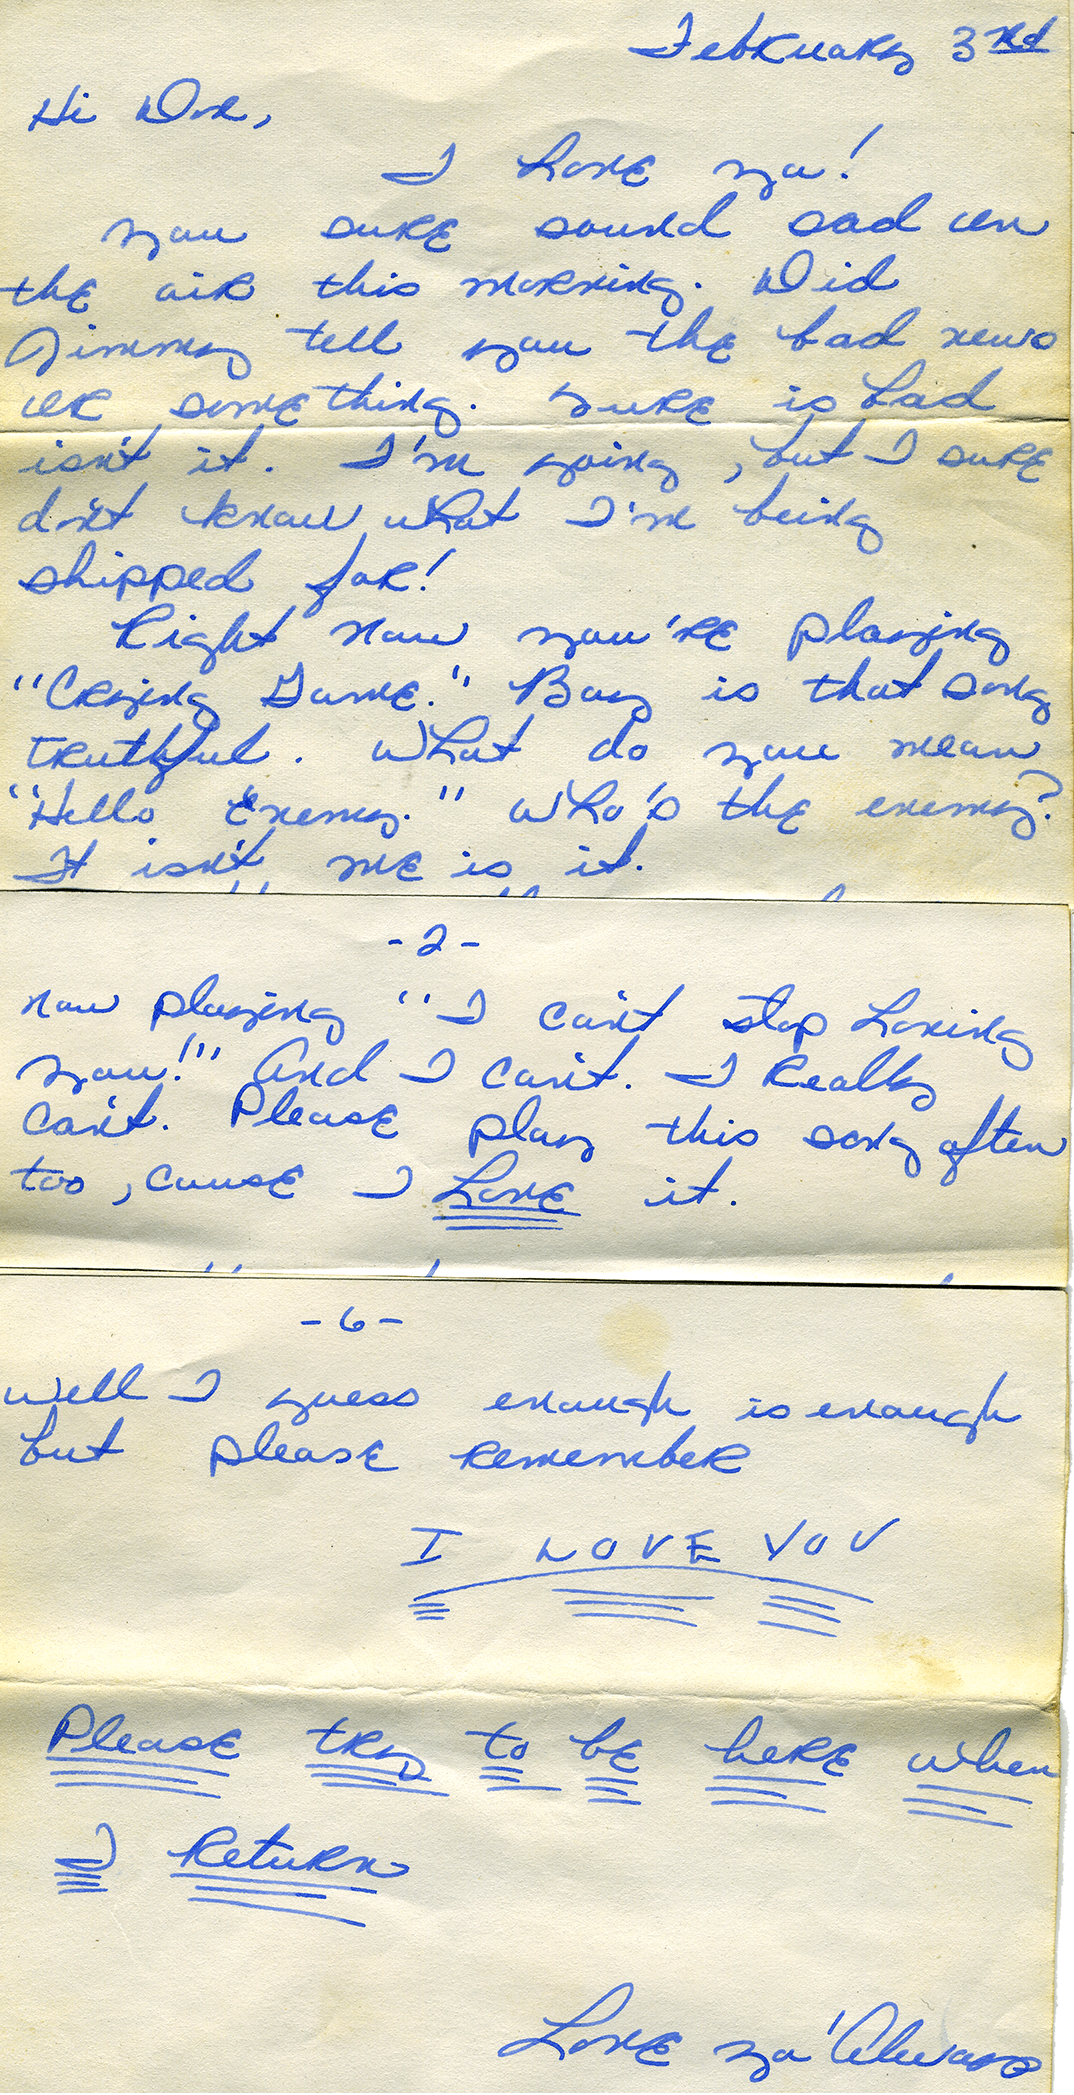 February 3rd
Hi Don,
I Love ya!
you sure sound sad on
the air this morning. Did
Jimmy tell you the bad news
or something. Sure is bad
isn't it. I'm going, but I sure
don't know what I'm being
shipped for!
Right now you're playing
"Crying Game." Boy is that song
truthful. What do you mean
"Hello Enemy." Who's the enemy?
It isn't me is it.
-2-
now playing "I can't stop Loving
you!" And I can't. I Really
can't. Please play this song often
too, cause I Love it.
-6-
well I guess enough is enough
but please remember
I LOVE YOU
Please try to be here when
I Return
Love ya' Always